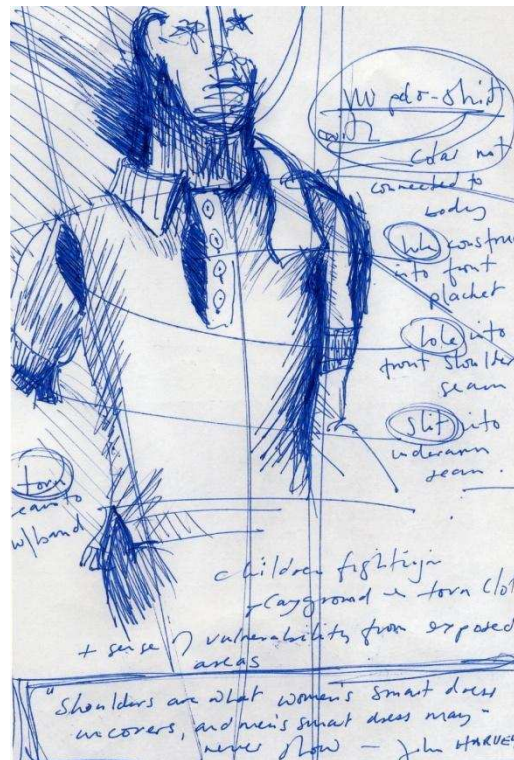 polo-shirt
not
connected to
body
hole construc
into front
placket
hole into
front shoulder
seam
slit into
underarm
seam.
torn
seam to
w/band
children fighting in
playground in torn clot
+ sense of vulnerability from exposed
areas
"Shoulders are what women's smart dress
uncovers, and men's smart dress may
never show – John HARVEY